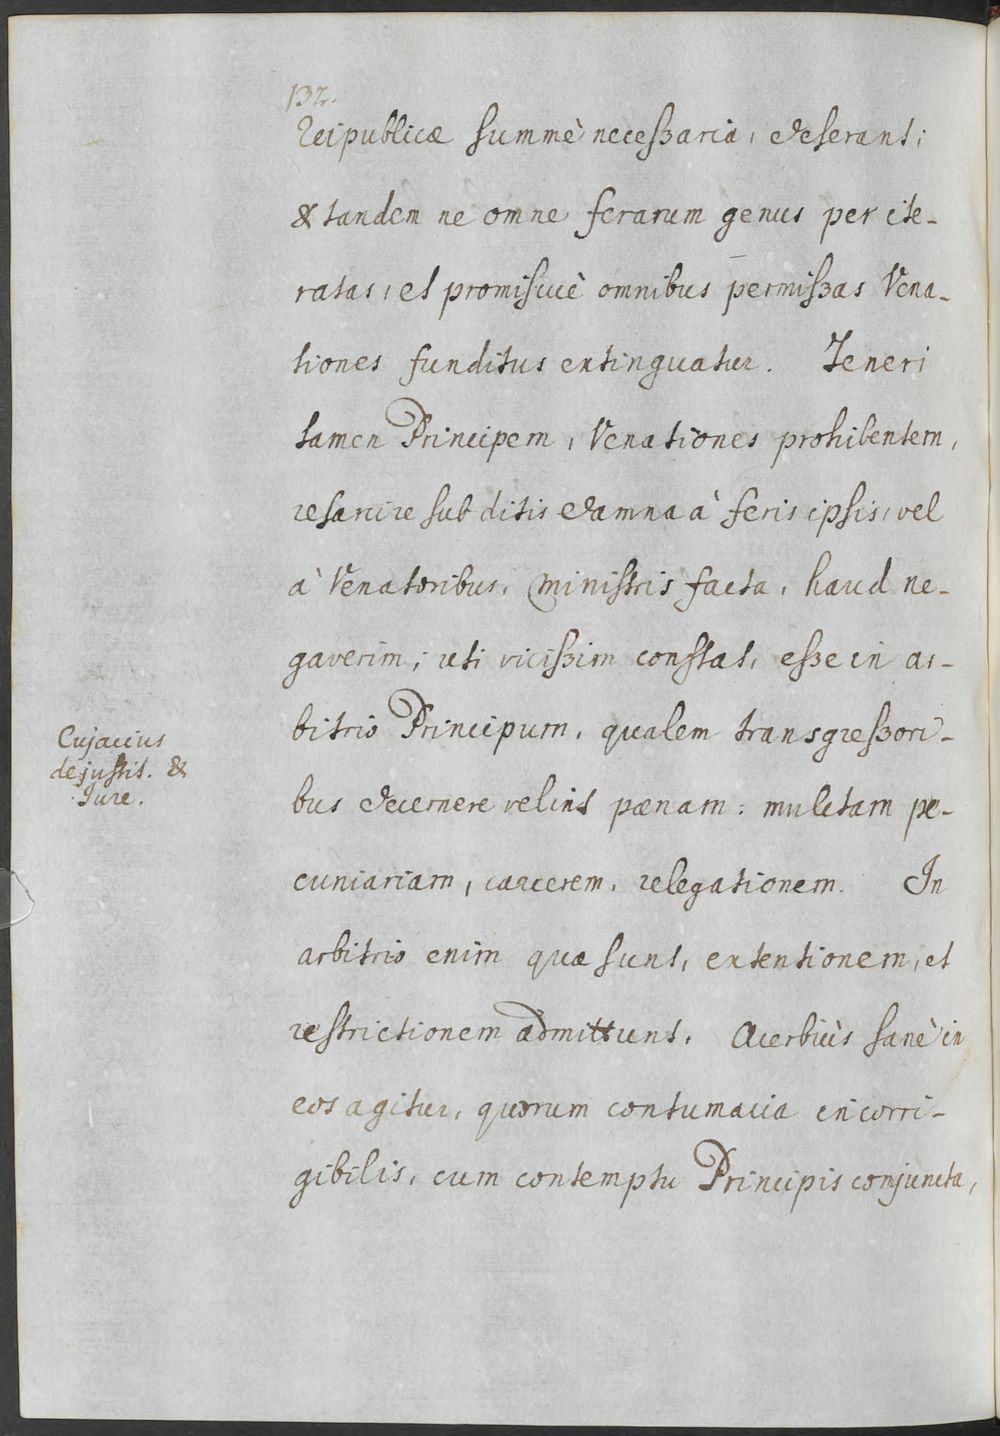 132.
Reipublicæ summè necessaria, deserant;
& tandem ne omne ferarum genus per ite-
ratas, et promiscuè omnibus permissas Vena-
tiones funditus extinguatur. Teneri
tamen Principem, Venationes prohibentem,
resarcire subditis damna à feris ipsis, vel
à Venatoribus, Ministris facta, haud ne-
gaverim; uti vicissim constat, esse in ar-
bitrio Principum, qualem transgressori-
Cujacius
de justit. &
Jure.
bus decernere velint pœnam: mulctam pe-
cuniariam, carcerem, relegationem. In
arbitrio enim quæ sunt, extentionem, et
restrictionem admittunt. Acerbiùs sanè in
eos agitur, quorum contumacia incorri-
gibilis, cum contemptu Principis conjuncta,